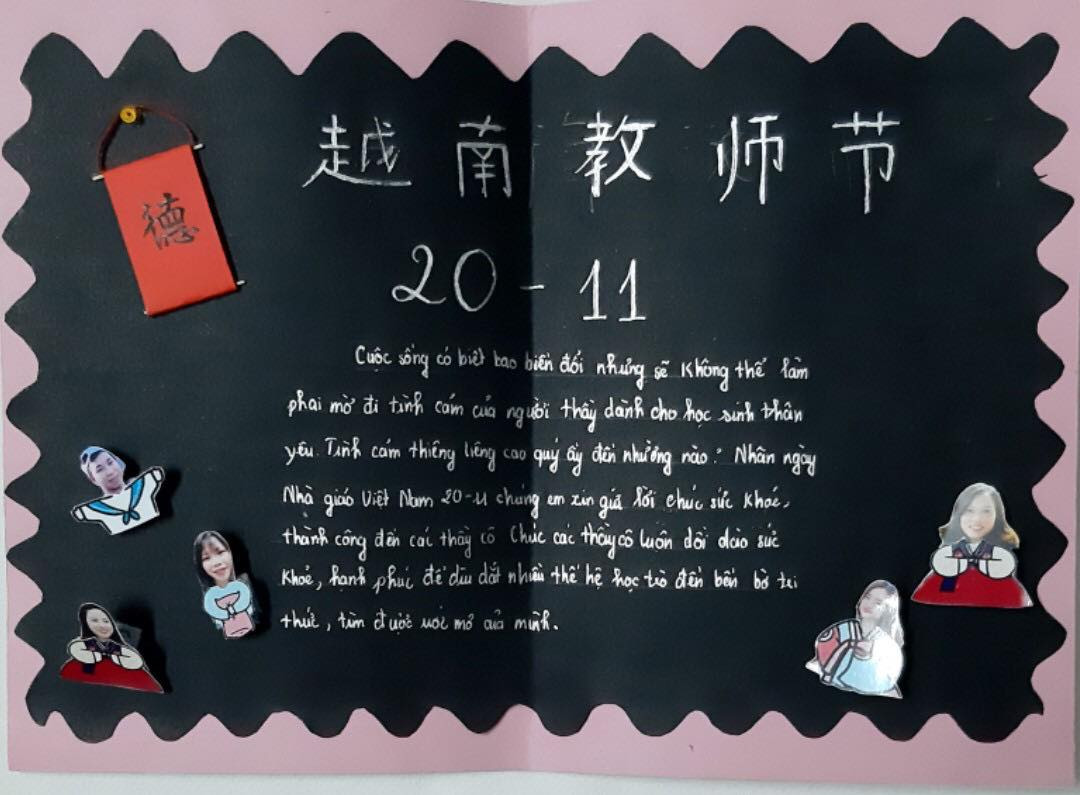 越南教师节
德
20-11
Cuộc sống có biết bao biến đổi nhưng sẽ không thể làm
phai mờ đi tình cảm của người thầy dành cho học sinh thân
yêu. Tình cảm thiêng liêng cao quý ấy đến nhường nào. Nhân ngày
Nhà giáo Việt Nam 20-11 chúng em xin gửi lời chúc sức khoẻ,
thành công đến các thầy cô Chúc các thầy cô luôn dồi dào sức
khoẻ, hạnh phúc để dìu dắt nhiều thế hệ học trò đến bến bờ tri
thức, tìm được ước mơ của mình.